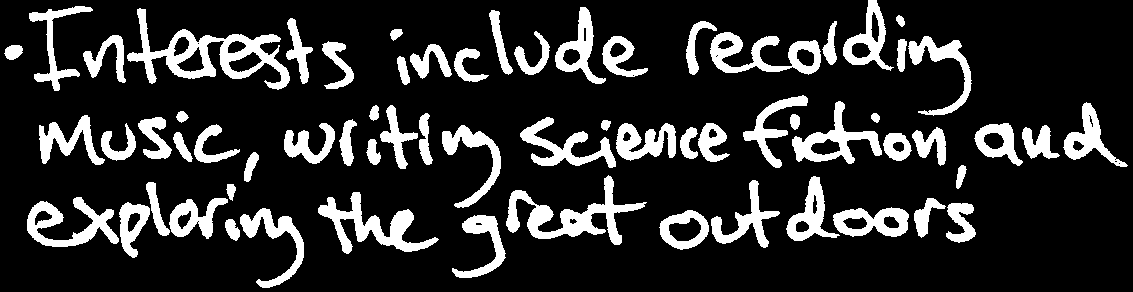 • Interests include recording
music, writing science fiction, and
exploring the great outdoors